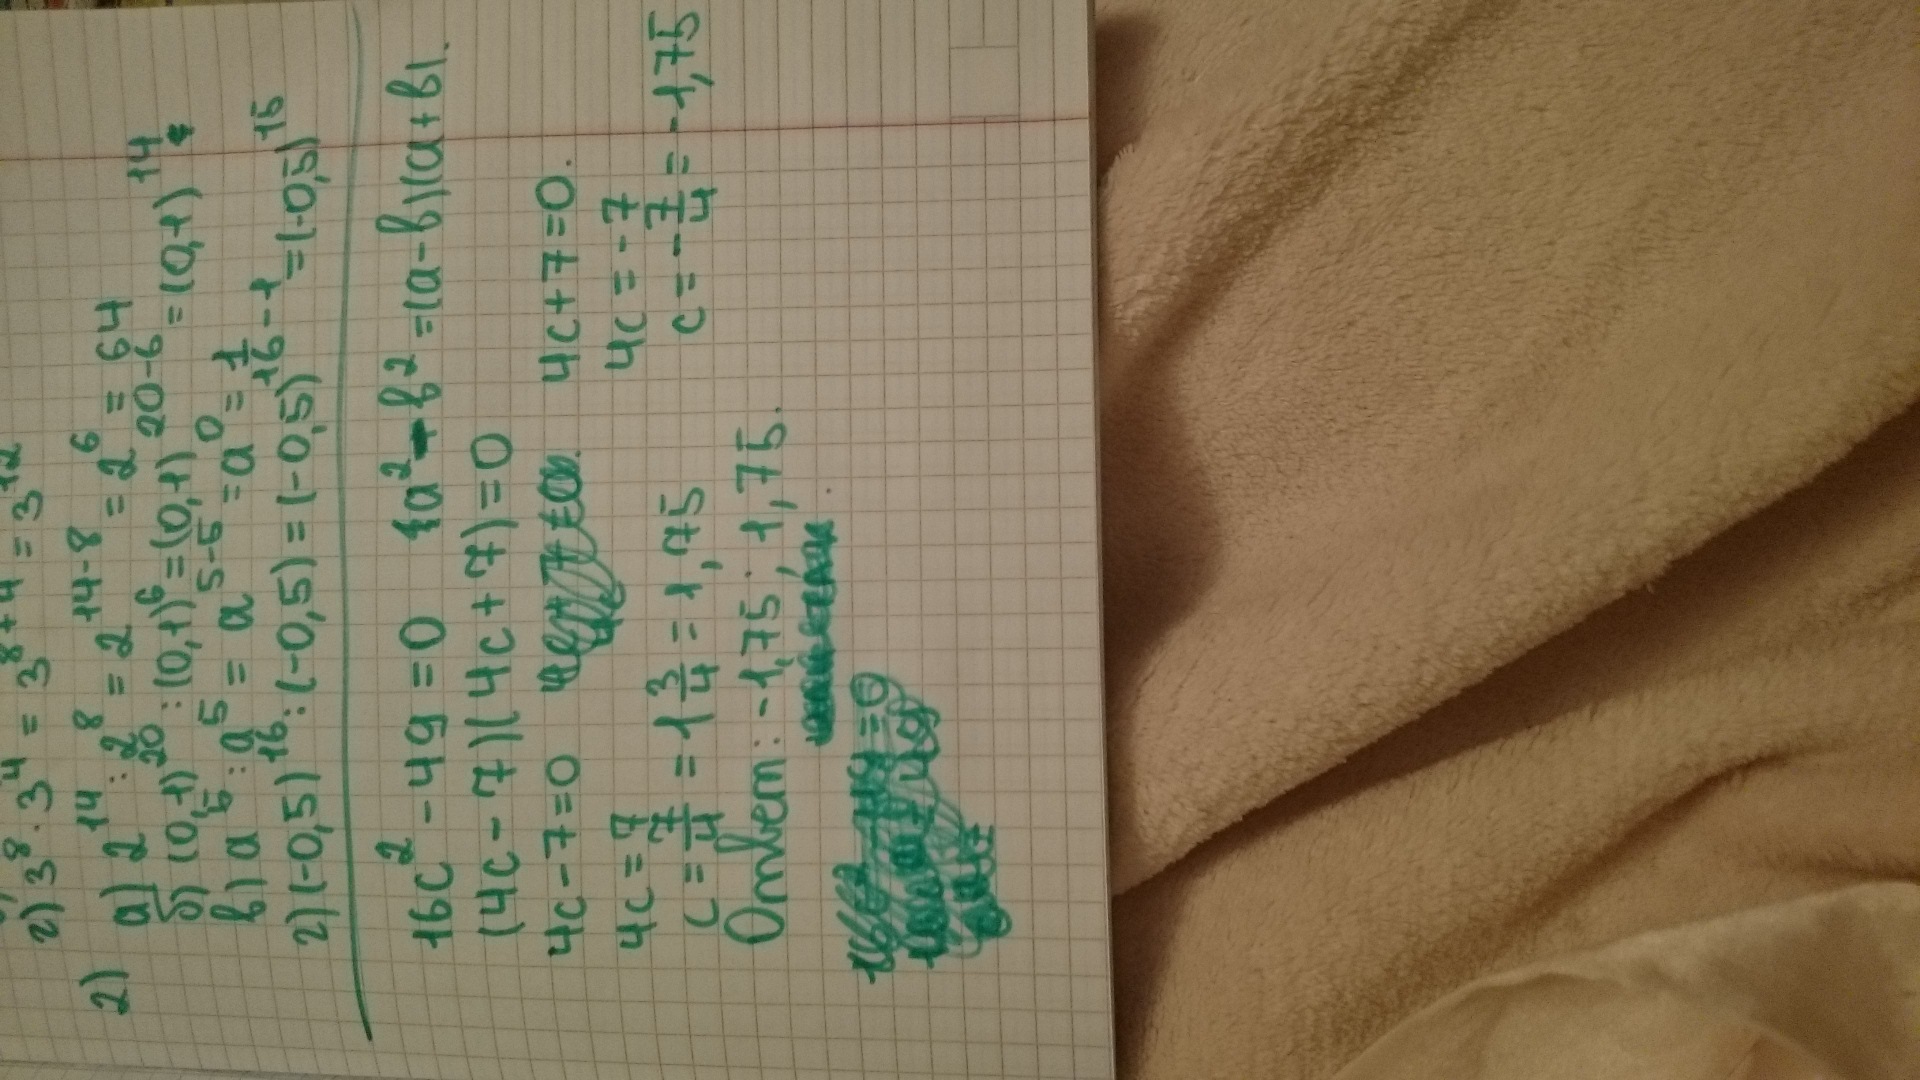 г) 3⁸·3⁴ = 3⁸⁺⁴ = 3¹²
2)
а) 2¹⁴ : 2⁸ = 2¹⁴⁻⁸ = 2⁶ = 64
б) (0,1)²⁰ : (0,1)⁶ = (0,1)²⁰⁻⁶ = (0,1)¹⁴
в) a⁵ : a⁵ = a⁵⁻⁵ = a⁰ = 1
г) (-0,5)¹⁶ : (-0,5) = (-0,5)¹⁶⁻¹ = (-0,5)¹⁵
16c² - 49 = 0 a² - b² = (a - b)(a + b).
(4c - 7)(4c + 7) = 0
4c - 7 = 0 4c + 7 = 0.
4c = 7 4c = -7
c = 7/4 = 1 3/4 = 1,75 c = -7/4 = -1,75
Ответ: -1,75; 1,75.